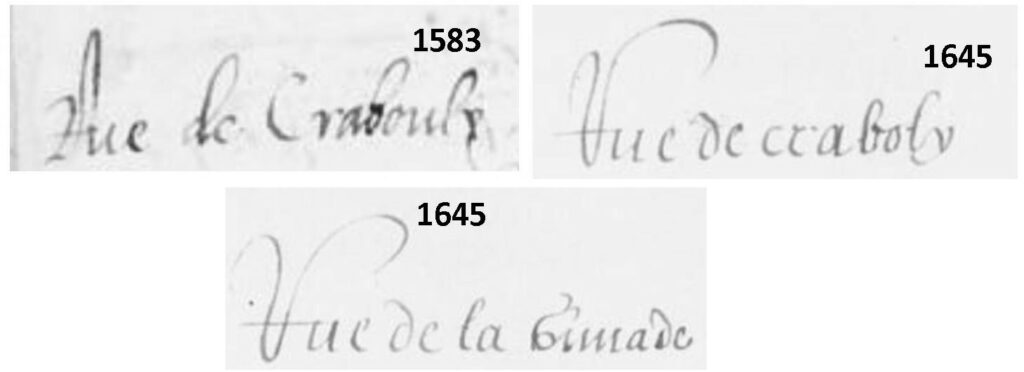 1583
Rue de Crabouly
1645
Rue de craboly
1645
Rue de la